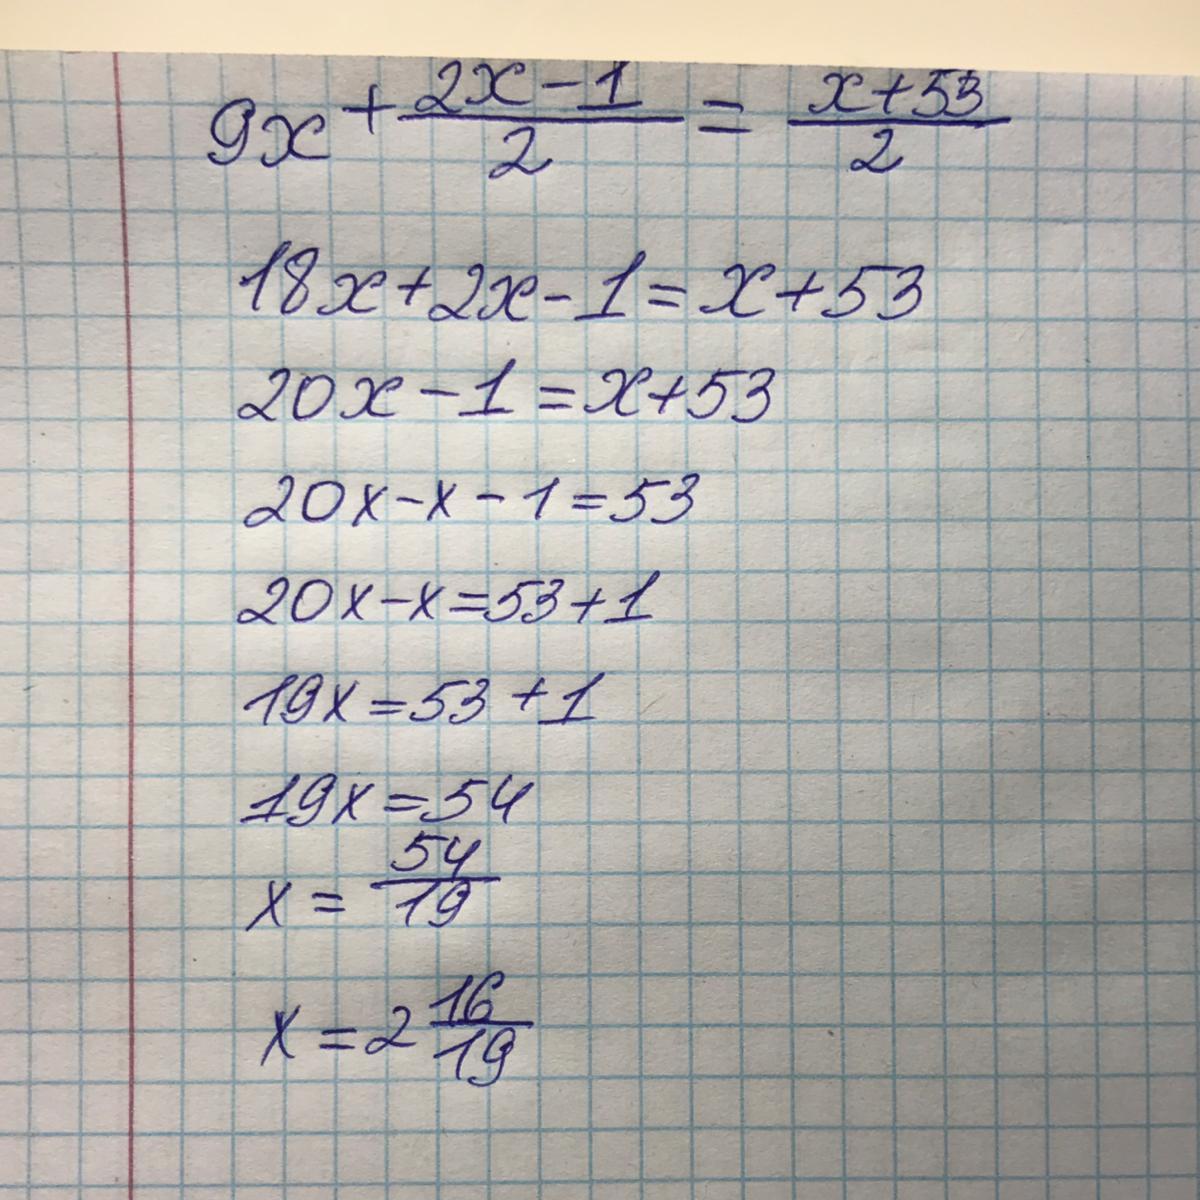 9x + (2x - 1)/2 = (x + 53)/2
18x + 2x - 1 = x + 53
20x - 1 = x + 53
20x - x - 1 = 53
20x - x = 53 + 1
19x = 53 + 1
19x = 54
x = 54/19
x = 2 16/19